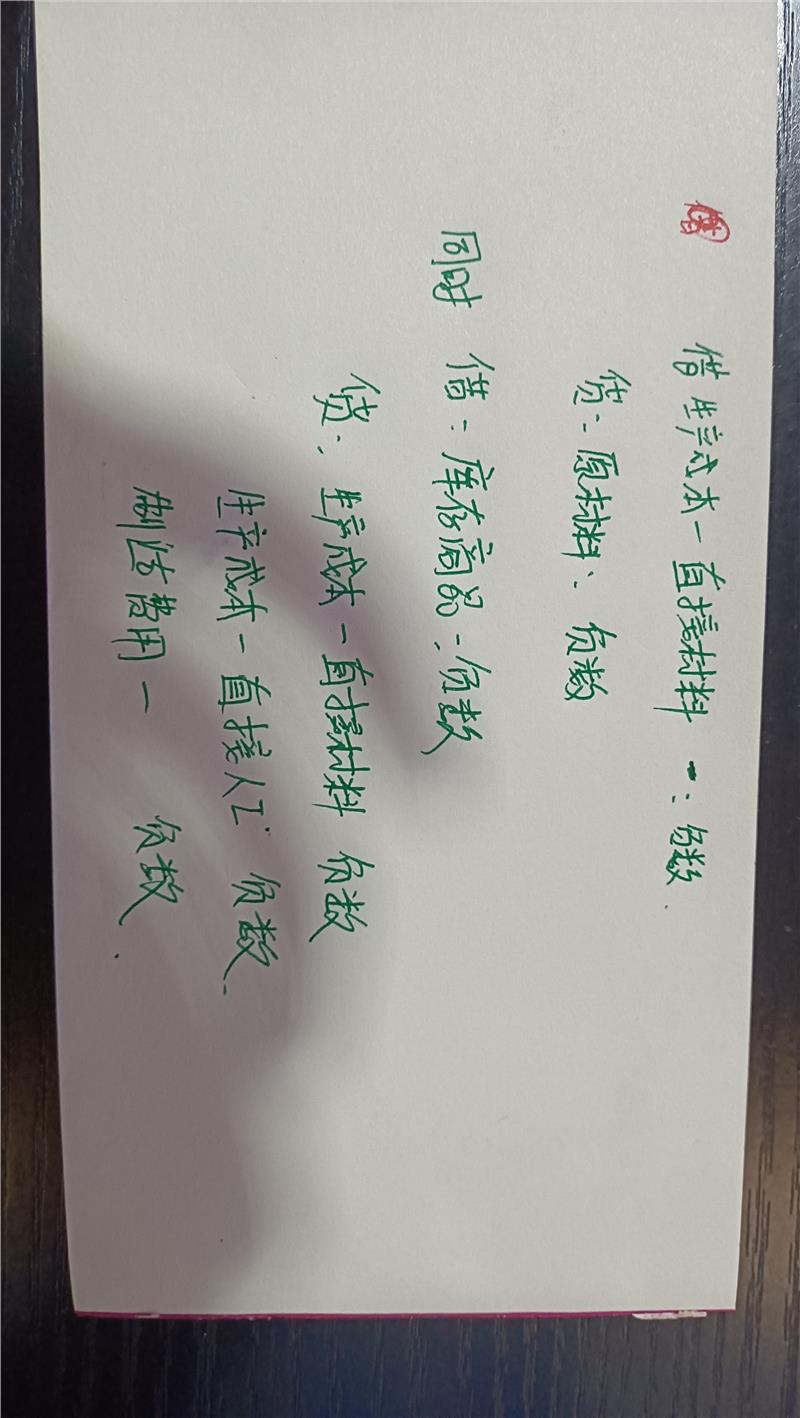 借
借 生产成本一直接材料 一:负数.
贷:原材料:负数
同时 借:库存商品:负数
贷:生产成本一直接材料 负数
生产成本一直接人工 负数.
制造费用一 负数.